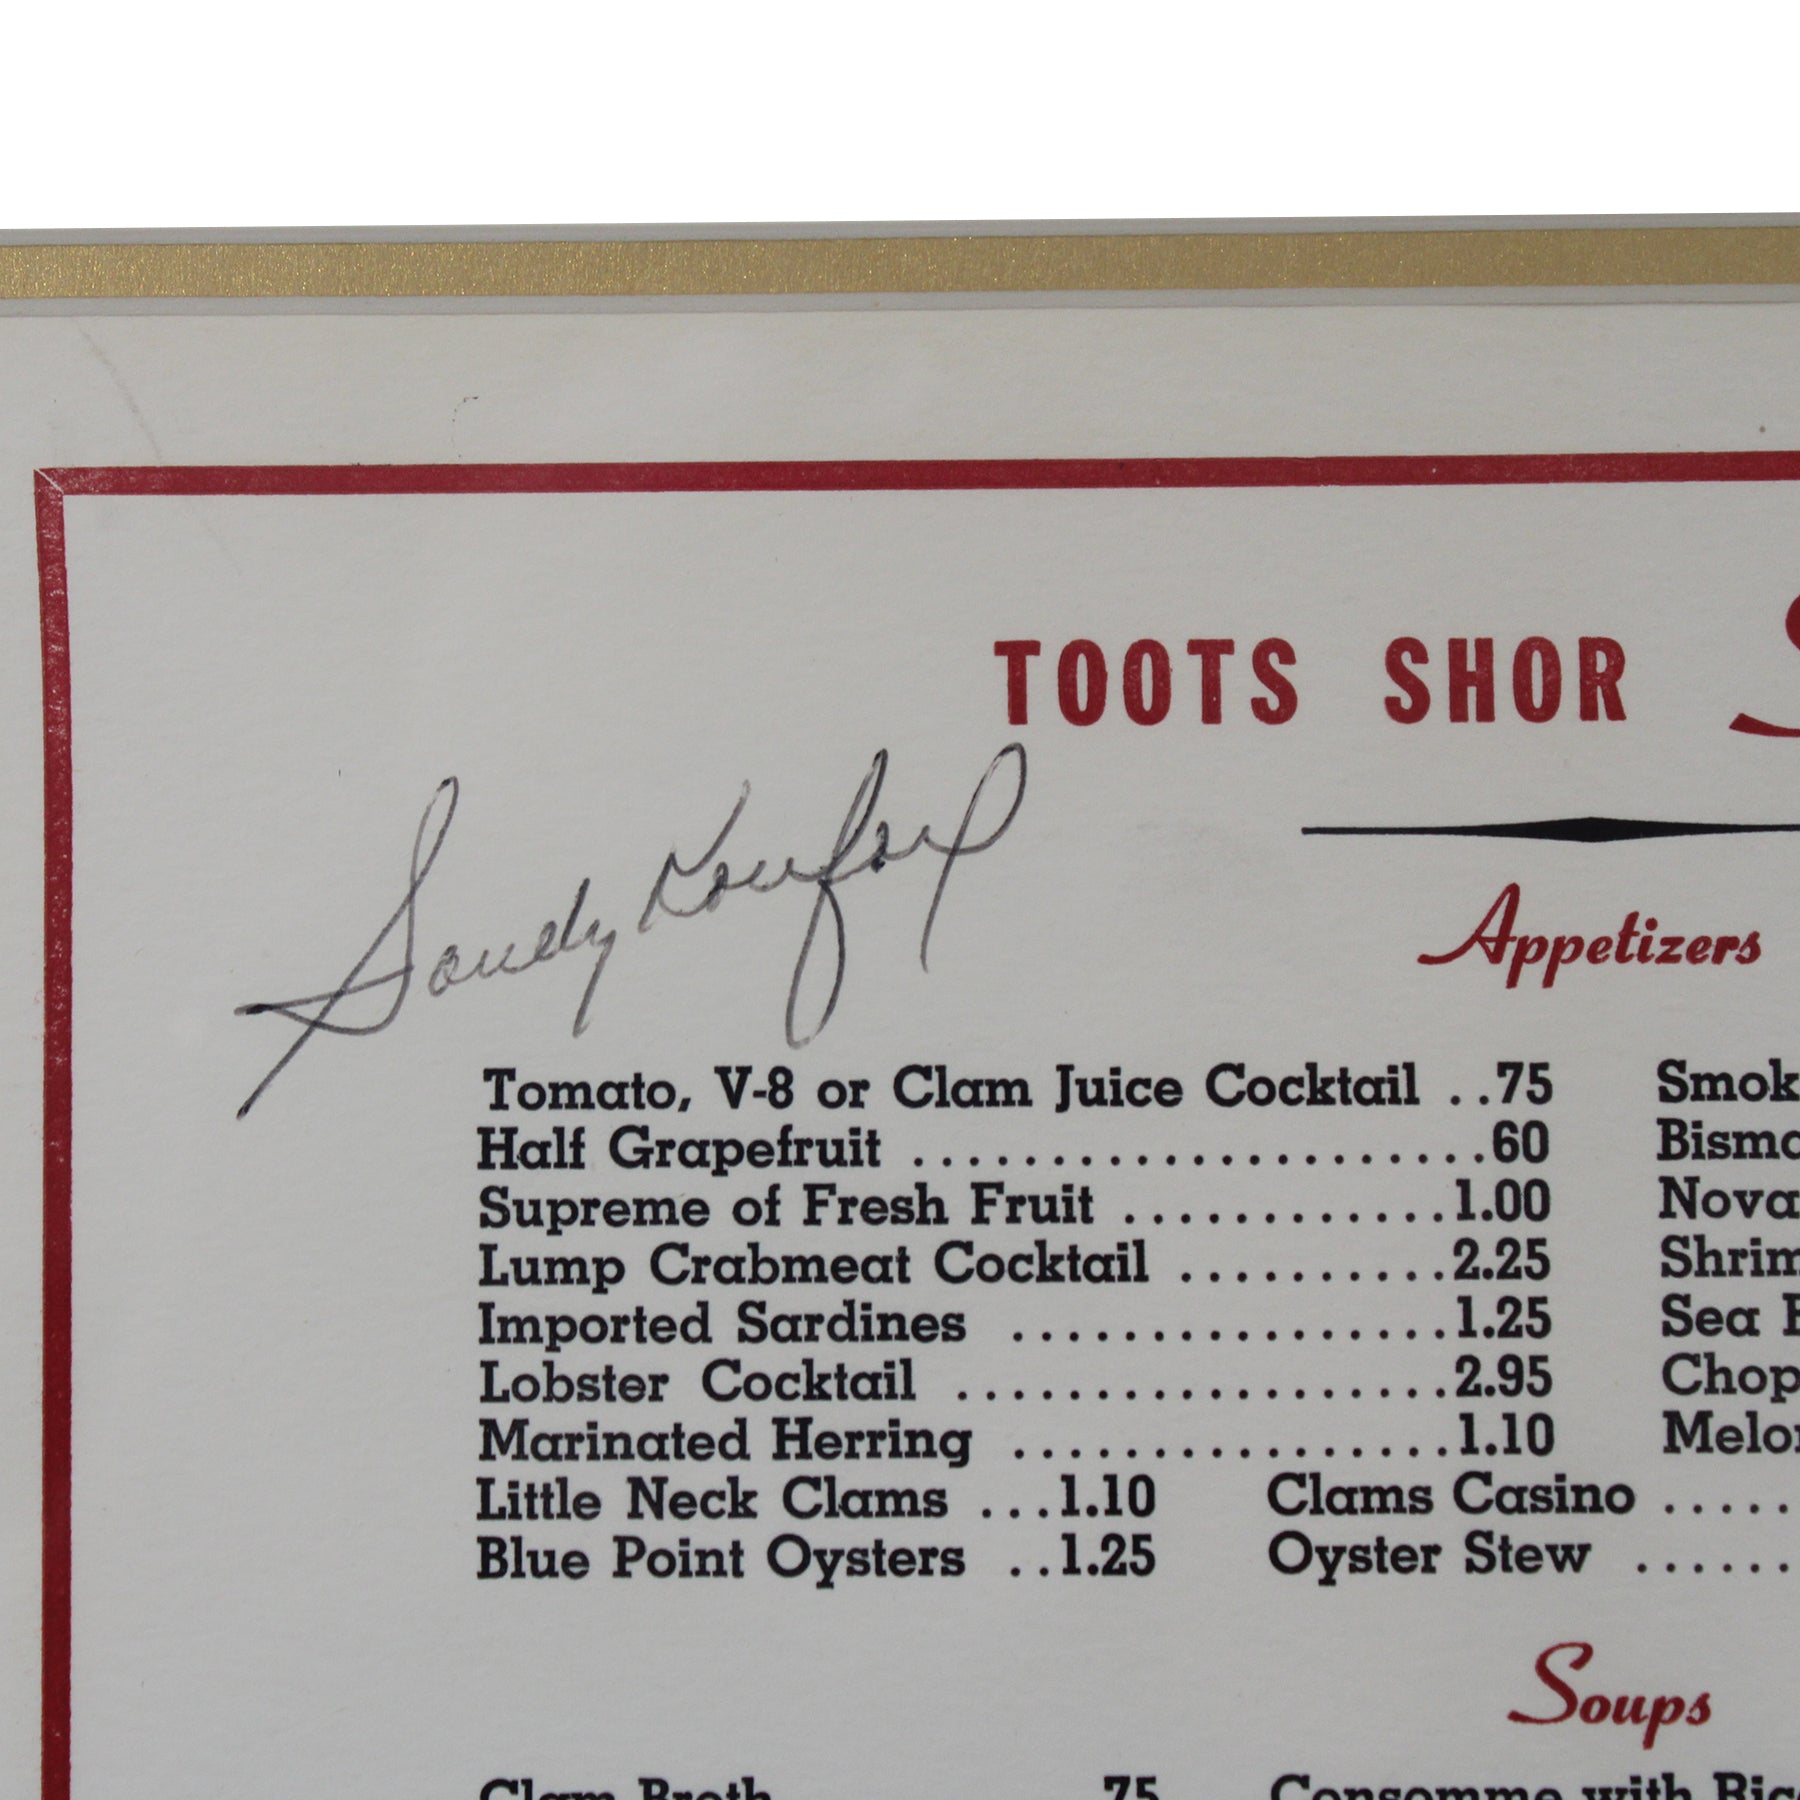 TOOTS SHOR
Sandy Koufax
Appetizers
Tomato, V-8 or Clam Juice Cocktail ..75 Smok
Half Grapefruit .....................60 Bisma
Supreme of Fresh Fruit ............1.00 Nova
Lump Crabmeat Cocktail ..........2.25 Shrim
Imported Sardines ................1.25 Sea
Lobster Cocktail ..................2.95 Chop
Marinated Herring ................1.10 Melon
Little Neck Clams ...1.10 Clams Casino .....
Blue Point Oysters ..1.25 Oyster Stew ......
Soups
Clam Broth 75 Consomme with Rice